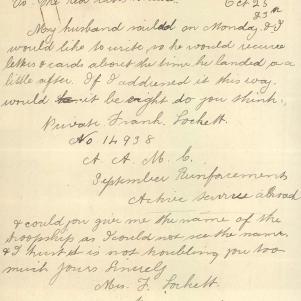 To. The Red Cross
Oct 25
My husband sailed on Monday, & I
would like to write, so he would receive
letters & cards about the time he landed or a
little after. If I addressed it this way.
would it be right do you think,
Private Frank Lockett.
No 14938
A. A. M. C.
September Reinforcements
Active service abroad
& could you give me the name of the
troopship as I could not see the name,
& I trust it is not troubling you too
much Yours Sincerely
Mrs. F. Lockett.